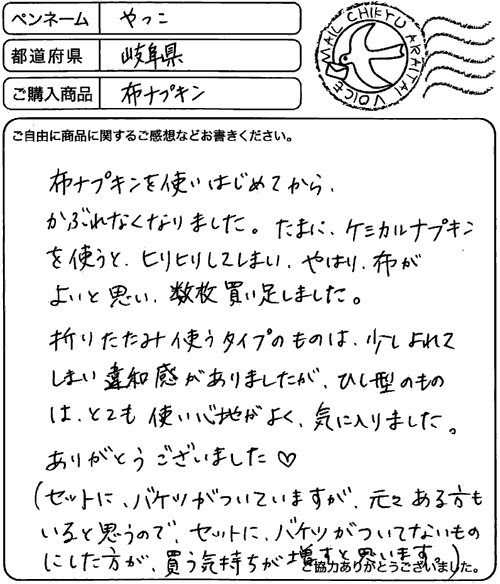 ペンネーム やっこ
都道府県 岐阜県
ご購入商品 布ナプキン
MAIL CHIKYU ARAITAI VOICE
ご自由に商品に関するご感想などお書きください。
布ナプキンを使いはじめてから、
かぶれなくなりました。たまに、ケミカルナプキン
を使うと、ヒリヒリしてしまい、やはり、布が
よいと思い、数枚買い足しました。
折りたたみ使うタイプのものは、少しよれて
しまい違和感がありましたが、ひし型のもの
は、とても使い心地がよく、気に入りました。
ありがとうございました♡
(セットに、バケツがついていますが、元々ある方も
いると思うので、セットに、バケツがついてないもの
にした方が、買う気持ちが増すと思います。)
ご協力ありがとうございました。